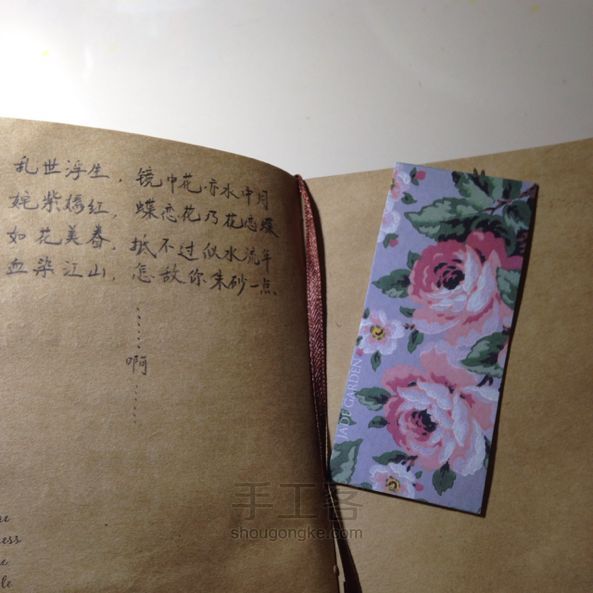 乱世浮生，镜中花亦水中月
姹紫嫣红，蝶恋花乃花恋蝶
如花美眷，抵不过似水流年
血染江山，怎敌你朱砂一点
……
啊
……
JADE GARDEN
手工客
shougongke.com